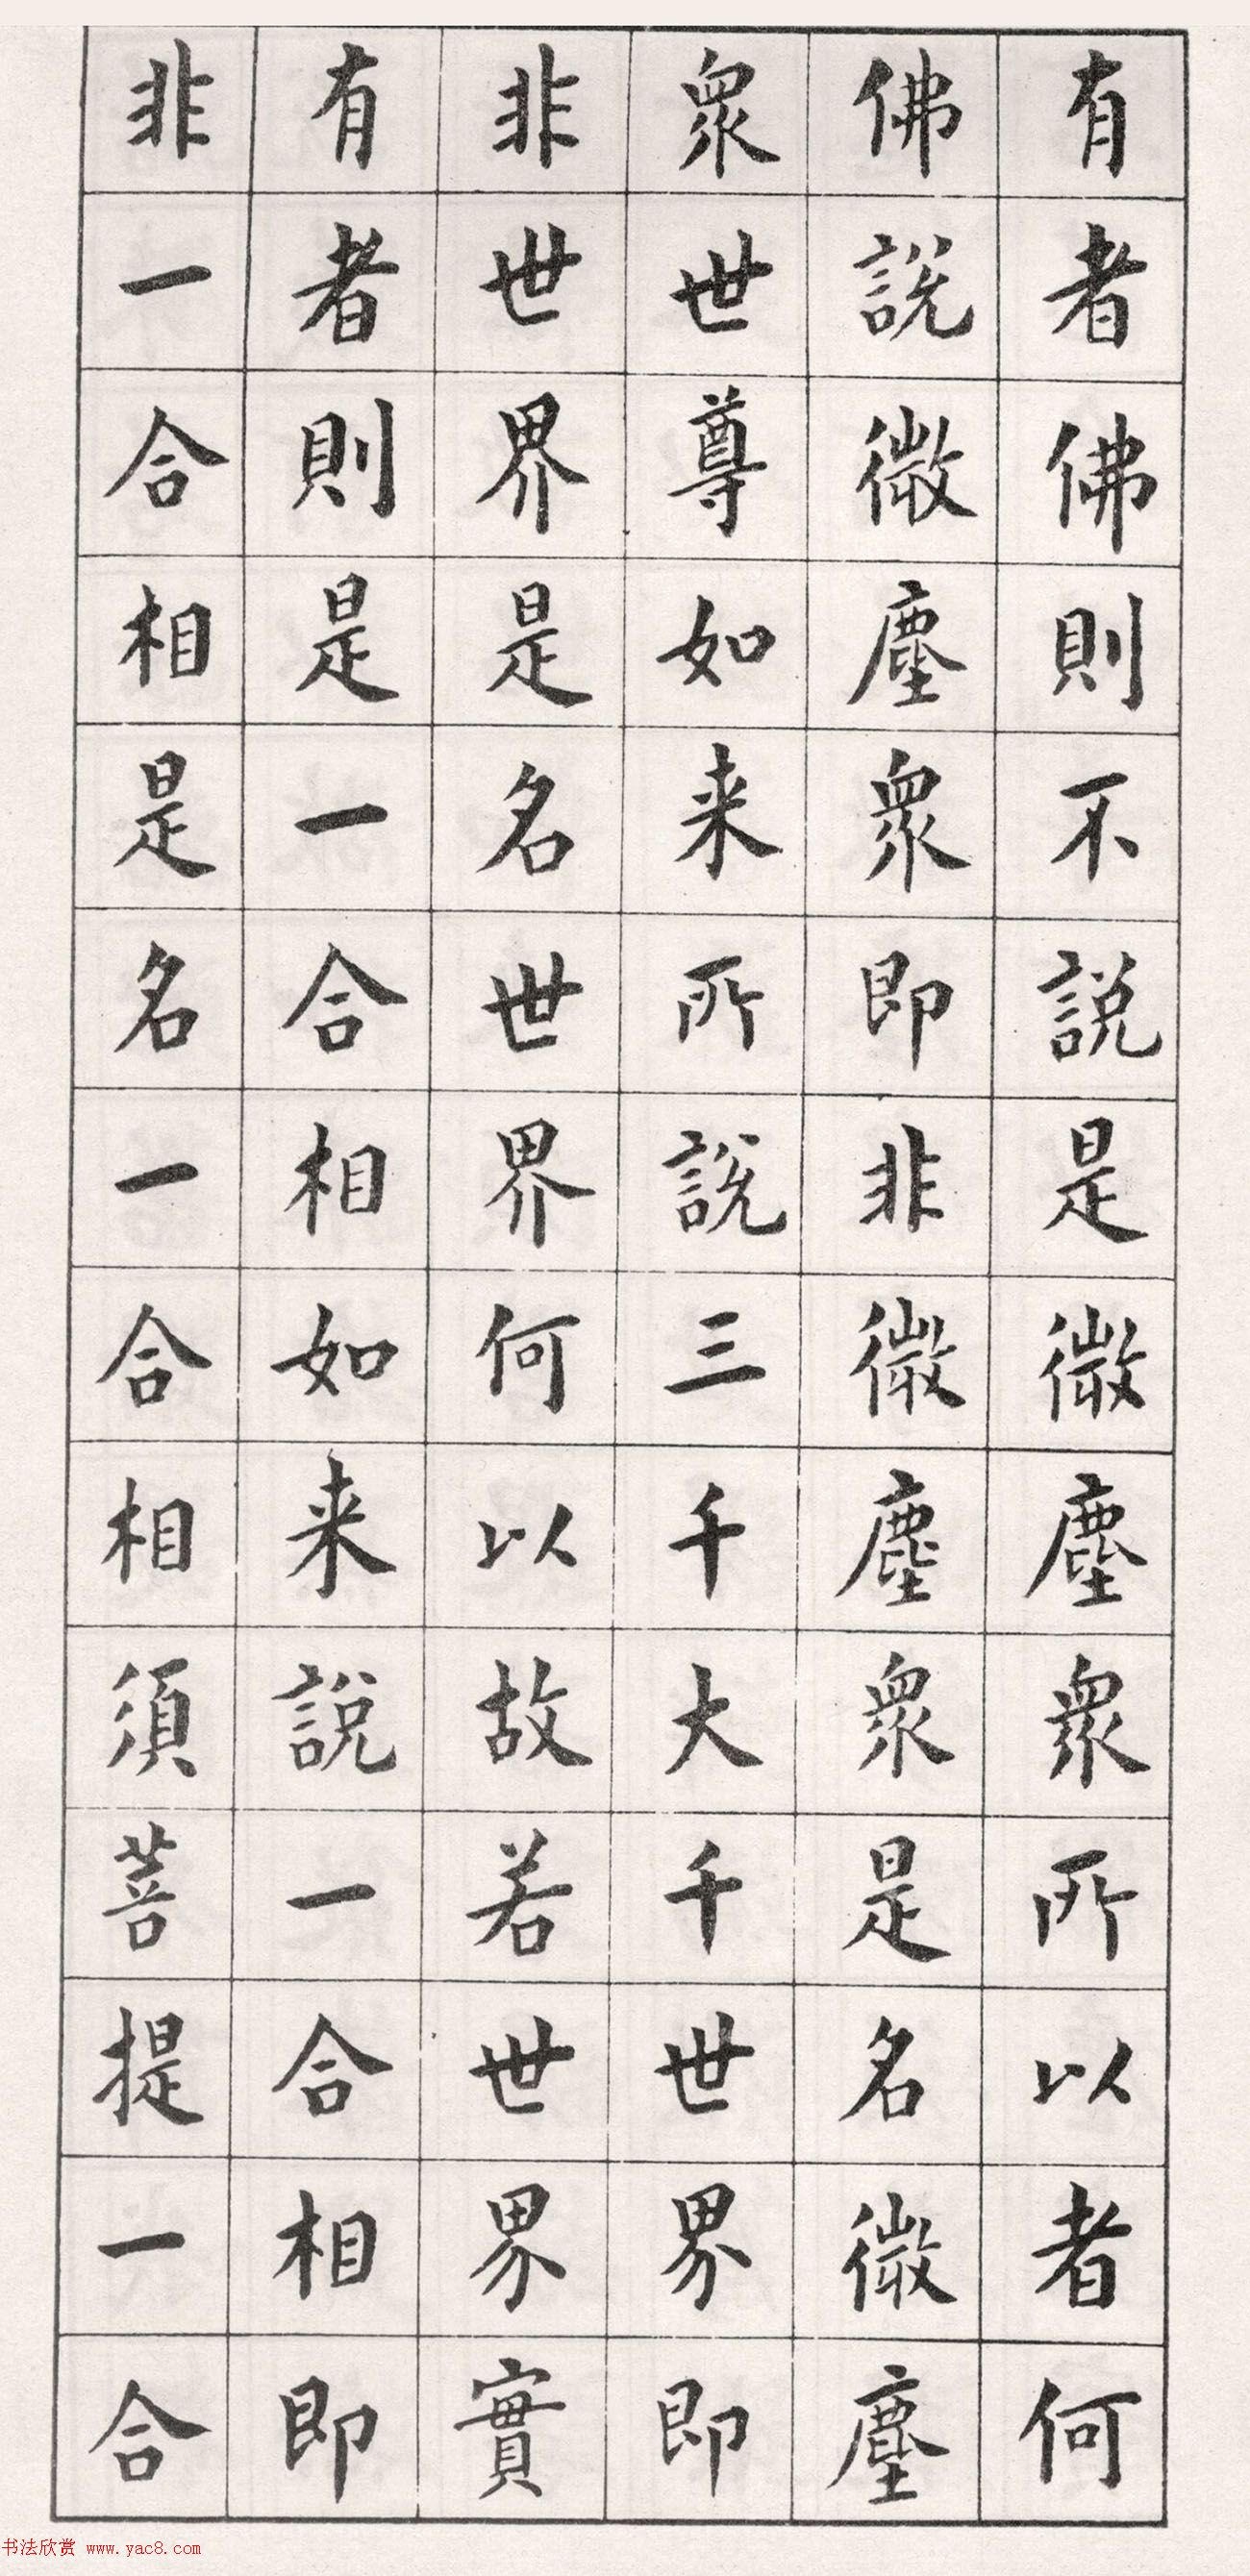 有者佛則不說是微塵衆所以者何
佛說微塵衆即非微塵衆是名微塵
衆世尊如来所說三千大千世界即
非世界是名世界何以故若世界實
有者則是一合相如来說一合相即
非一合相是名一合相須菩提一合
书法欣赏 www.yac8.com